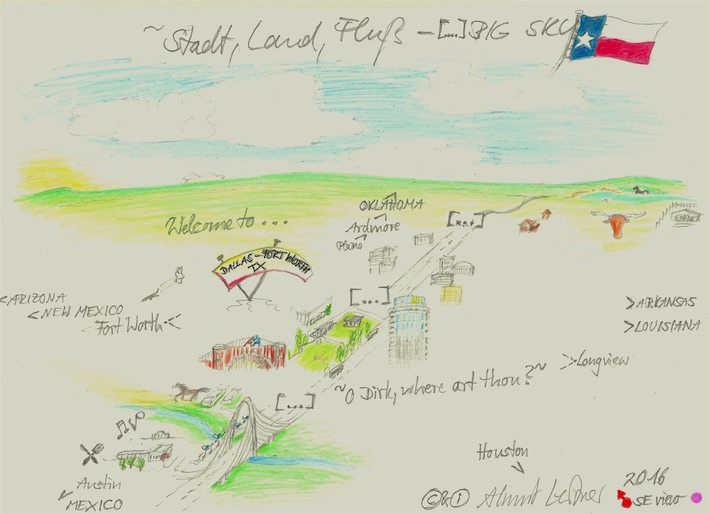 ~ Stadt, Land, Fluß – [....] BIG SKY
Welcome to ...
OKLAHOMA
Ardmore
Plano
DALLAS – FORT WORTH
TX
[....]
< ARIZONA
< NEW MEXICO
Fort Worth <
> ARKANSAS
> LOUISIANA
> Longview
~ O Dirk, where art thou? ~
[....]
Austin
MEXICO
Houston
2016
SE view